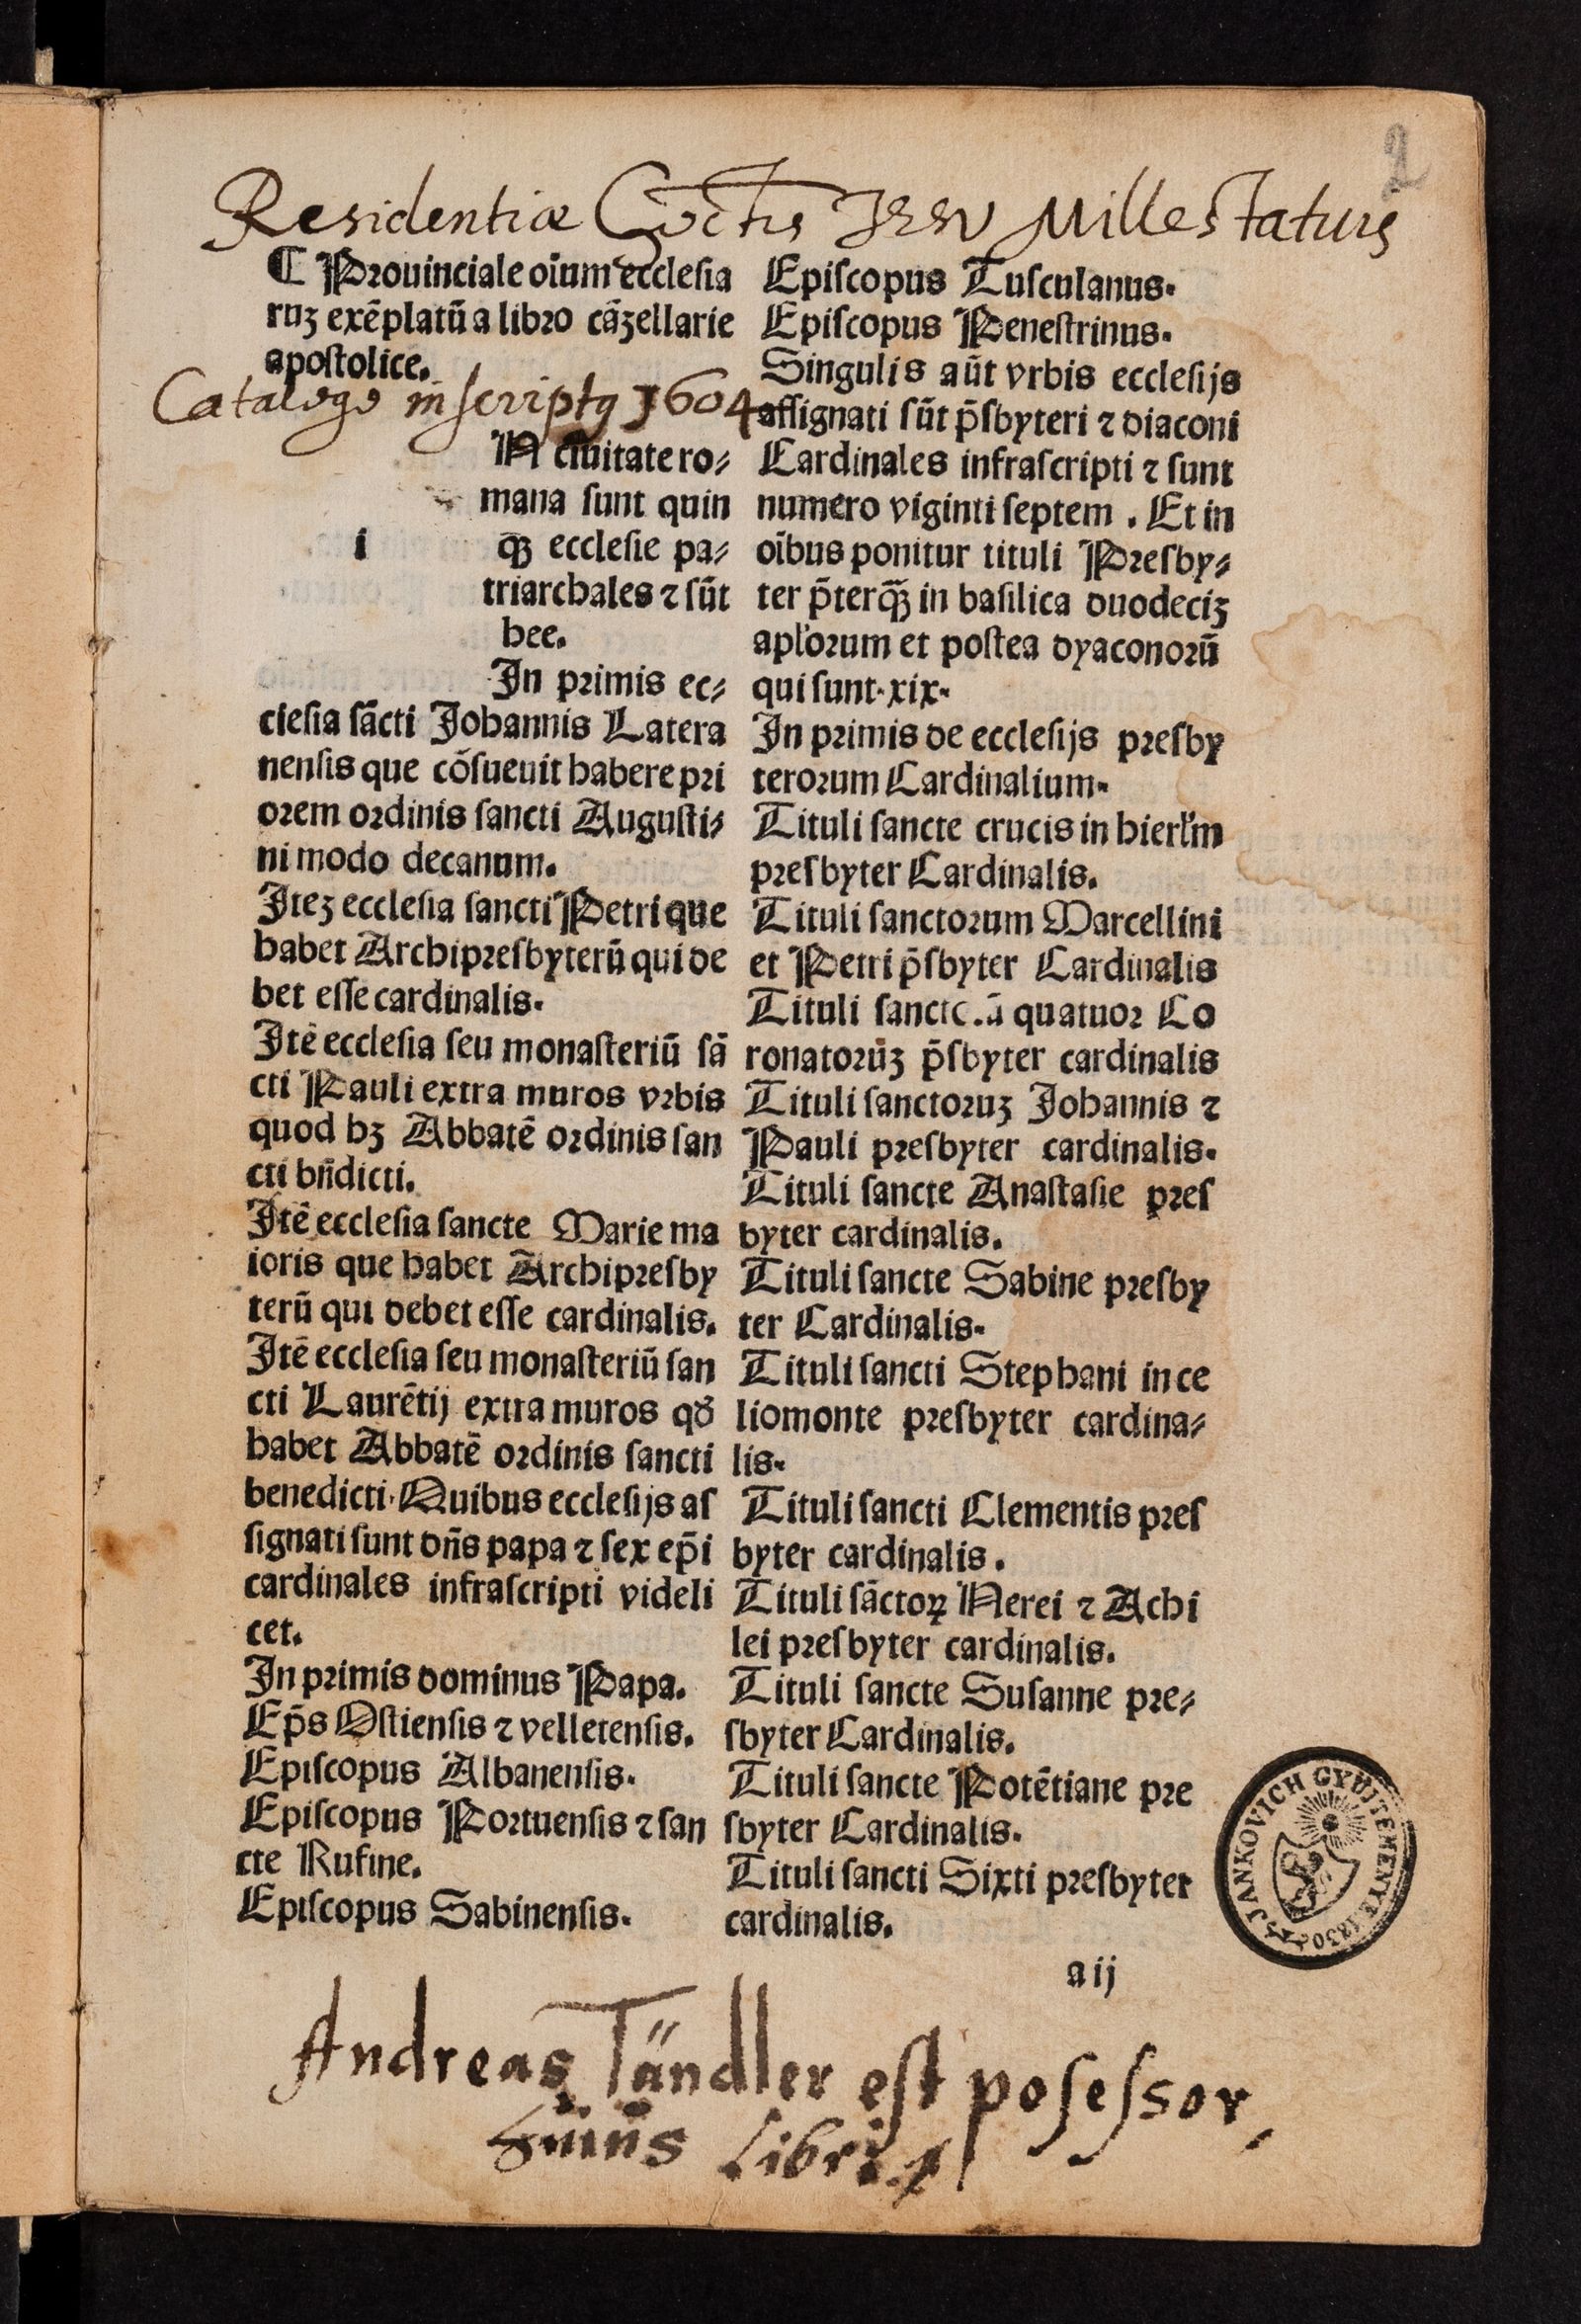 2
Residentiæ Soctis Jesu Millestaturē
⁋ Prouinciale oĩum ecclesia
ruꝫ exẽplatũ a libro cãzellarie
apostolice.
Catalogo inscriptꝰ 1604
IN ciuitate ro⸗
mana sunt quin
i qꝫ ecclesie pa⸗
triarchales ⁊ sũt
hee.
In primis ec⸗
clesia sãcti Johannis Latera
nensis que cõsueuit habere pri
orem ordinis sancti Augusti⸗
ni modo decanum.
Iteꝫ ecclesia sancti Petri que
habet Archipresbyterũ qui de
bet esse cardinalis.
Itẽ ecclesia seu monasteriũ sã
cti Pauli extra muros vrbis
quod hꝫ Abbatẽ ordinis san
cti bñdicti.
Itẽ ecclesia sancte Marie ma
ioris que habet Archipresby
terũ qui debet esse cardinalis.
Itẽ ecclesia seu monasteriũ san
cti Laurẽtij extra muros qď
habet Abbatẽ ordinis sancti
benedicti. Quibus ecclesijs as
signati sunt dñs papa ⁊ sex ep̃i
cardinales infrascripti videli
cet.
In primis dominus Papa.
Ep̃s Ostiensis ⁊ velletensis.
Episcopus Albanensis.
Episcopus Portuensis ⁊ san
cte Rufine.
Episcopus Sabinensis.
Episcopus Tusculanus.
Episcopus Penestrinus.
Singulis aũt vrbis ecclesijs
assignati sũt p̃sbyteri ⁊ diaconi
Cardinales infrascripti ⁊ sunt
numero viginti septem . Et in
oĩbus ponitur tituli Presby⸗
ter p̃terqꝫ̃ in basilica duodeciꝫ
apl'orum et postea dyaconorũ
qui sunt. xix.
In primis de ecclesijs presby
terorum Cardinalium.
Tituli sancte crucis in hierl'm
presbyter Cardinalis.
Tituli sanctorum Marcellini
et Petri p̃sbyter Cardinalis
Tituli quatuor Co
ronatorũꝫ p̃sbyter cardinalis
Tituli sanctoruꝫ Johannis ⁊
Pauli presbyter cardinalis.
Tituli sancte Anastasie pres
byter cardinalis.
Tituli sancte Sabine presby
ter Cardinalis.
Tituli sancti Stephani in ce
liomonte presbyter cardina⸗
lis.
Tituli sancti Clementis pres
byter cardinalis.
Tituli sãctoꝝ Nerei ⁊ Achi
lei presbyter cardinalis.
Tituli sancte Susanne pre⸗
sbyter Cardinalis.
Tituli sancte Potẽtiane pre
sbyter Cardinalis.
Tituli sancti Sixti presbyter
cardinalis.
a ij
JANKOVICH GYÜJTEMÉNYE 1830
Andreas Tändler est posessor,
huius Libri